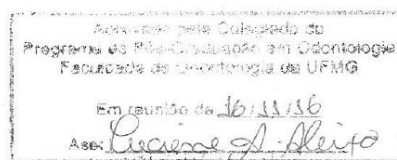 Aprovado pelo Colegiado do
Programa de Pós-Graduação em Odontologia
Faculdade de Odontologia da UFMG
Em reunião de 16/11/16
Ass: Luciene A. Aleixo